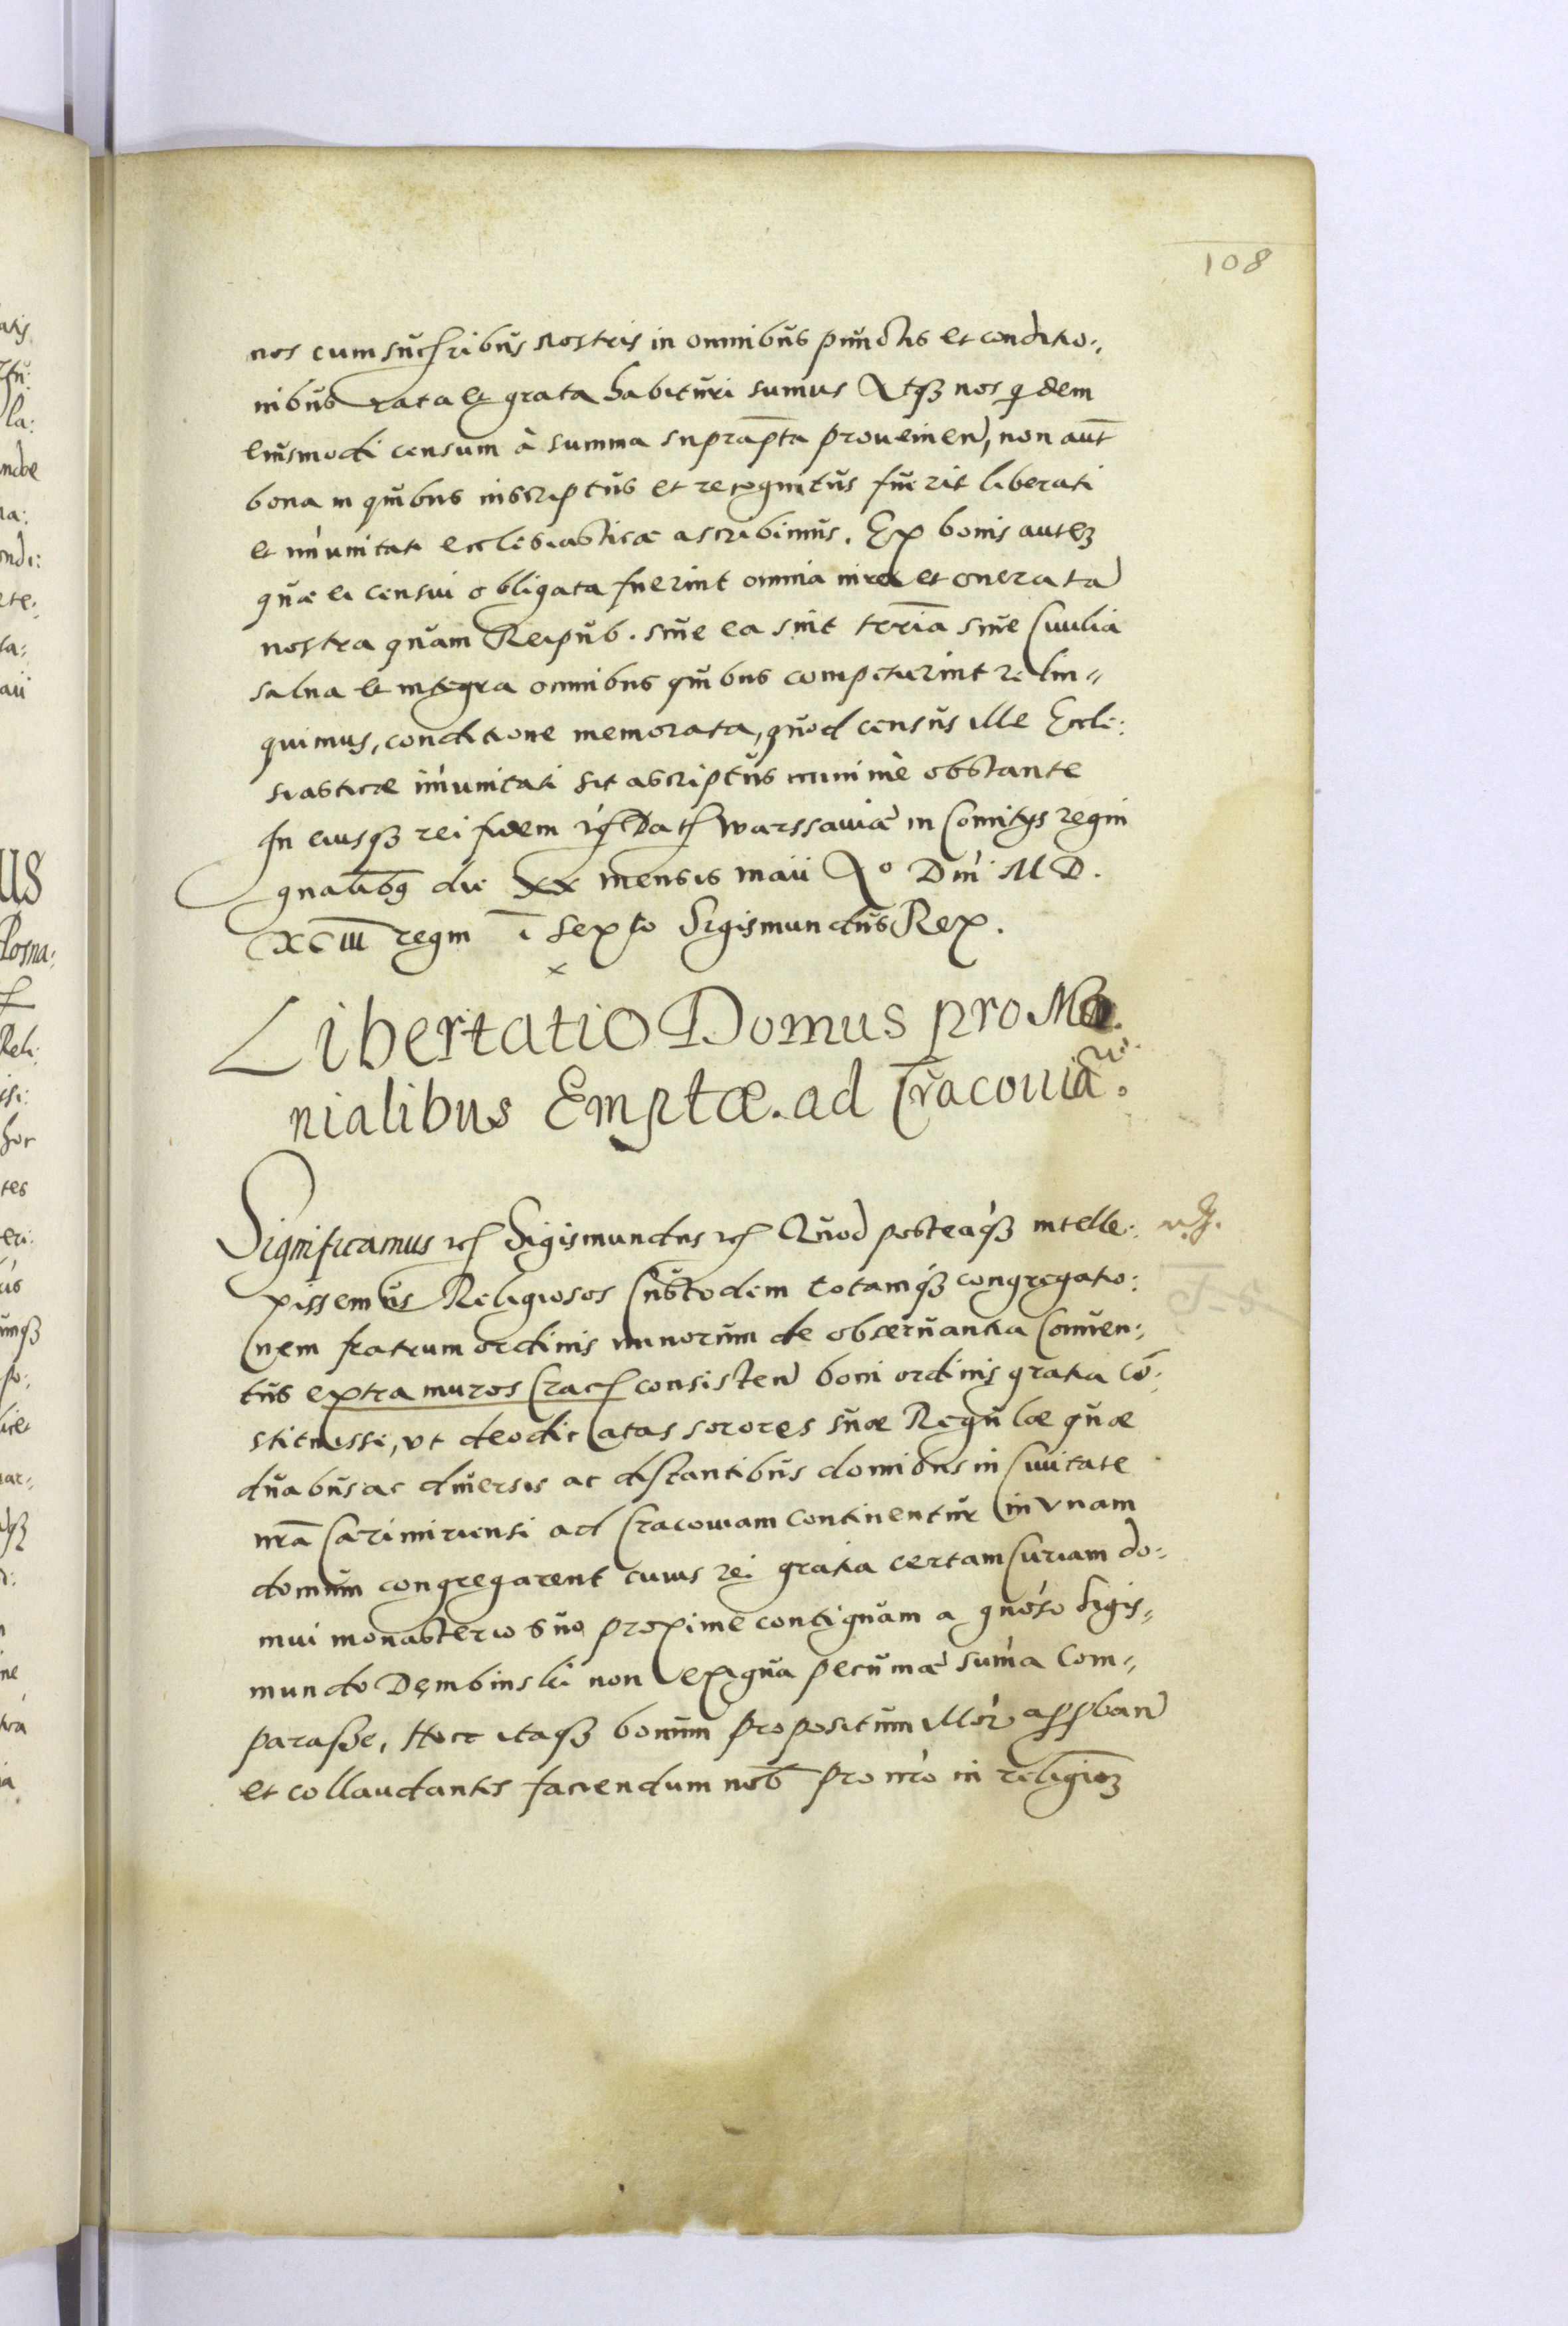 108
nos cum succribus nostris in omnibus punctis et conditio:
nibus rata et grata habituri sumus Atqz nos qdem
eiusmodi censum à summa suprapta prouenien, non aut
bona in quibus inscriptus et recognitus fuerit libertati
et imunitati ecclesiasticæ ascribimus. Ex bonis autez
quæ ei censui obligata fuerint omnia iura et onera ta
nostra quam Reipub. siue ea sint terria siue Ciuilia
salua et integra omnibus quibus competierint relin=
quimus, conditione memorata, quod census ille Eccle:
siasticæ imunitati sit ascriptus minimè obstante
In eiusqz rei fidem etc Dat Warssauiæ in Comitys regni
gnalibq die xx mensis maii Ao Dni M D.
XCIII regni i sexto Sigismundus Rex.
x
Libertatio Domus pro Mo.
nialibus Emptæ. ad Cracouiã.
Significamus etc Sigismundus etc Quod posteaqz intelle:
xissemus Religiosos Custodem totamqz congregatio:
nem fratrum ordinis minorum de obseruantia Conuen:
tus extra muros Crac consisten boni ordinis gratia cō:
stituisse, vt deodicatas sorores suæ Regulæ quæ
duabus ac diuersis ac distantibus domibus in Ciuitate
nrã Casimiriensi ad Cracouiam continentur in vnam
domum congregarent cuius rei gratia certam Curiam do:
mui monasterio suo proxime contiguam a gnoso Sigis=
mundo Dembinski non exigua pecuniæ suma Com=
parasse, Hocc itaqz bonum propositum illor approban
et collaudantes faciendum nob pro nro in religioz